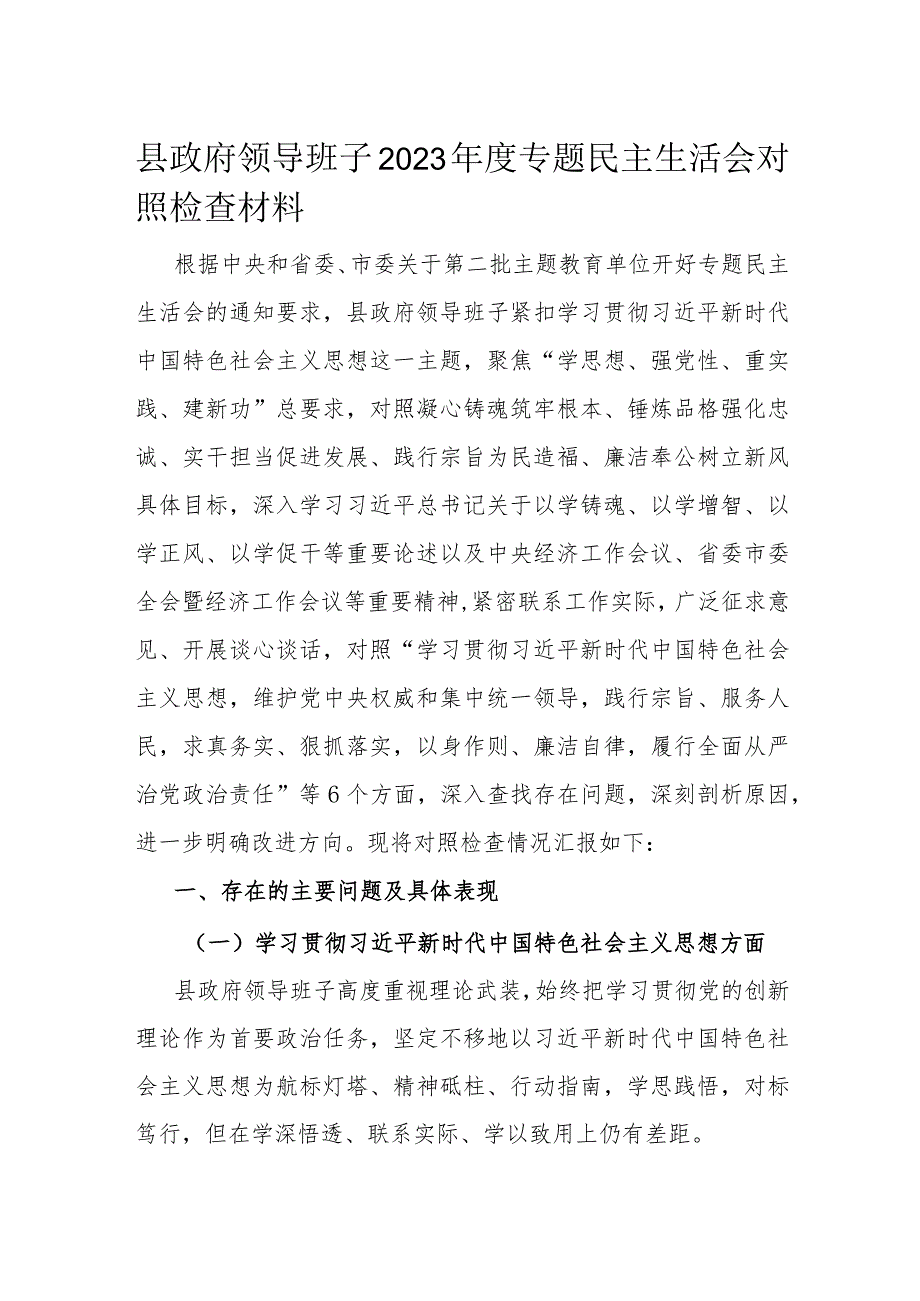 县政府领导班子2023年度专题民主生活会对
照检查材料
根据中央和省委、市委关于第二批主题教育单位开好专题民主
生活会的通知要求，县政府领导班子紧扣学习贯彻习近平新时代
中国特色社会主义思想这一主题，聚焦“学思想、强党性、重实
践、建新功”总要求，对照凝心铸魂筑牢根本、锤炼品格强化忠
诚、实干担当促进发展、践行宗旨为民造福、廉洁奉公树立新风
具体目标，深入学习习近平总书记关于以学铸魂、以学增智、以
学正风、以学促干等重要论述以及中央经济工作会议、省委市委
全会暨经济工作会议等重要精神,紧密联系工作实际，广泛征求意
见、开展谈心谈话，对照“学习贯彻习近平新时代中国特色社会
主义思想，维护党中央权威和集中统一领导，践行宗旨、服务人
民，求真务实、狠抓落实，以身作则、廉洁自律，履行全面从严
治党政治责任”等6个方面，深入查找存在问题，深刻剖析原因，
进一步明确改进方向。现将对照检查情况汇报如下：
一、存在的主要问题及具体表现
（一）学习贯彻习近平新时代中国特色社会主义思想方面
县政府领导班子高度重视理论武装，始终把学习贯彻党的创新
理论作为首要政治任务，坚定不移地以习近平新时代中国特色社
会主义思想为航标灯塔、精神砥柱、行动指南，学思践悟，对标
笃行，但在学深悟透、联系实际、学以致用上仍有差距。